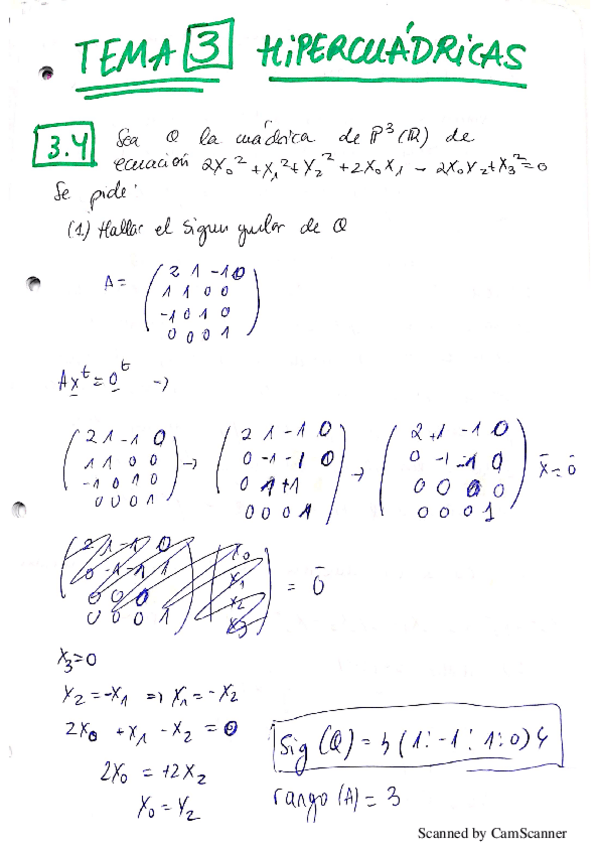 TEMA 3 HiPERCUÁDRICAS
3.4 Sea Q la cuádrica de P³(R) de
ecuación 2X₀² + X₁² + X₂² + 2X₀X₁ - 2X₀X₂ + X₃² = 0
Se pide:
(1) Hallar el Sigun gular de Q
A = ( 2 1 -1 0
1 1 0 0
-1 0 1 0
0 0 0 1 )
Ax^t = 0^t →
( 2 1 -1 0 → ( 2 1 -1 0 → ( 2 +1 -1 0
1 1 0 0 0 -1 -1 0 0 -1 -1 0
-1 0 1 0 0 1 +1 0 0 0 0
0 0 0 1 ) 0 0 0 1 ) 0 0 0 1 ) x̄ = 0̄
= 0̄
X₃ = 0
X₂ = -X₁ ⇒ X₁ = -X₂
2X₀ + X₁ - X₂ = 0
2X₀ = +2X₂
X₀ = X₂
Sig (Q) = { (1 : -1 : 1 : 0) }
rango (A) = 3
Scanned by CamScanner